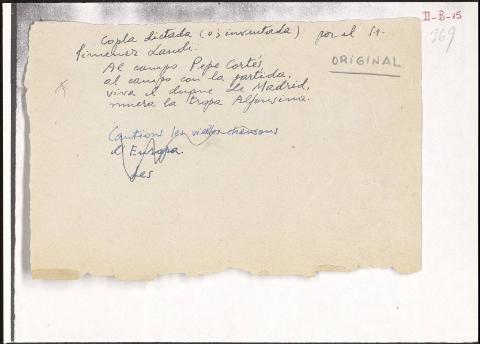 II-B-15
269
Copla dictada (o ¿inventada) por el Sr.
Jimenez Landi.
ORIGINAL
Al campo Pepe Cortés,
al campo con la partida,
viva el duque de Madrid,
muera la tropa Alfonsina.
les vielles chansons
d'Europa.
les